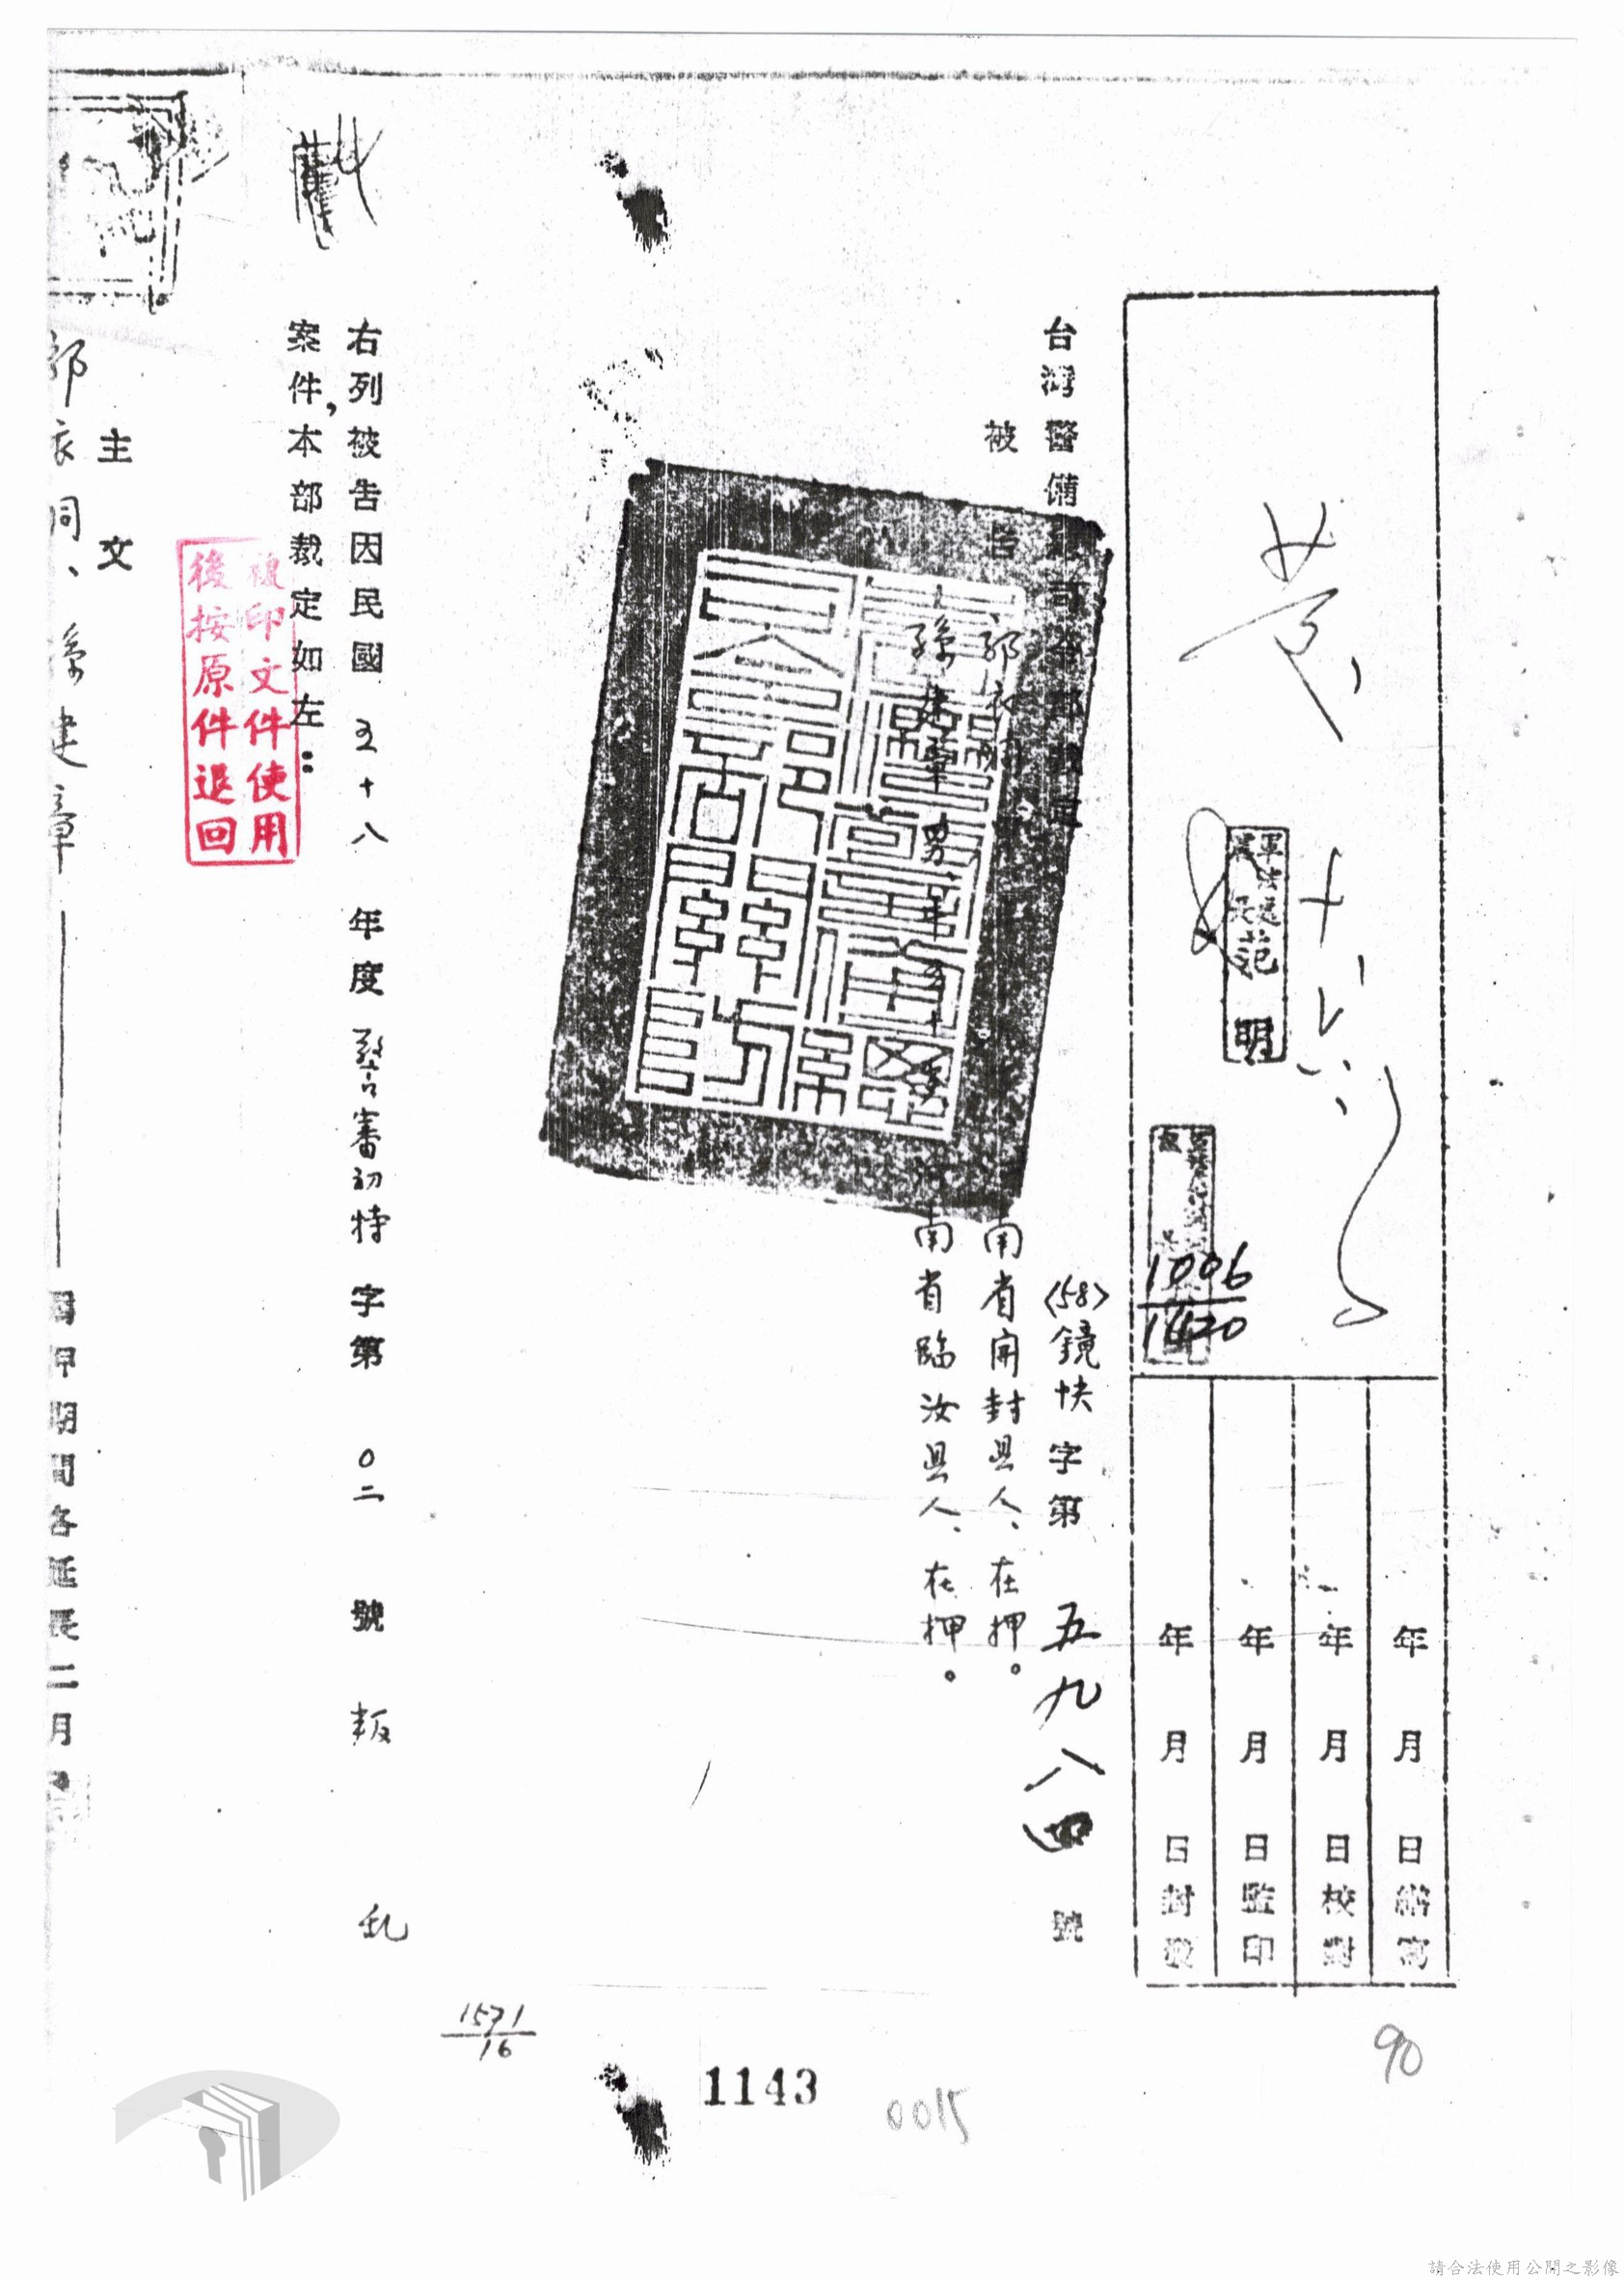 年 月 日 繕寫
年 月 日 校對
年 月 日 監印
年 月 日 封發
軍法處
處長 范明
1006
1420
台灣警備總司令部裁定
〈58〉鏡快字第 五九八四 號
被告 郭衣洞
南省開封县人、在押。
孫建章 男 年五十
河南省臨汝县人、在押。
右列被告因民國 五十八 年度 警審初特 字第 0二 號 叛 乱
案件,本部裁定如左:
複印文件使用
後按原件退回
主文
郭衣洞、孫建章 羈押期間各延長二月
1571
16
1143
0015
90
請合法使用公開之影像